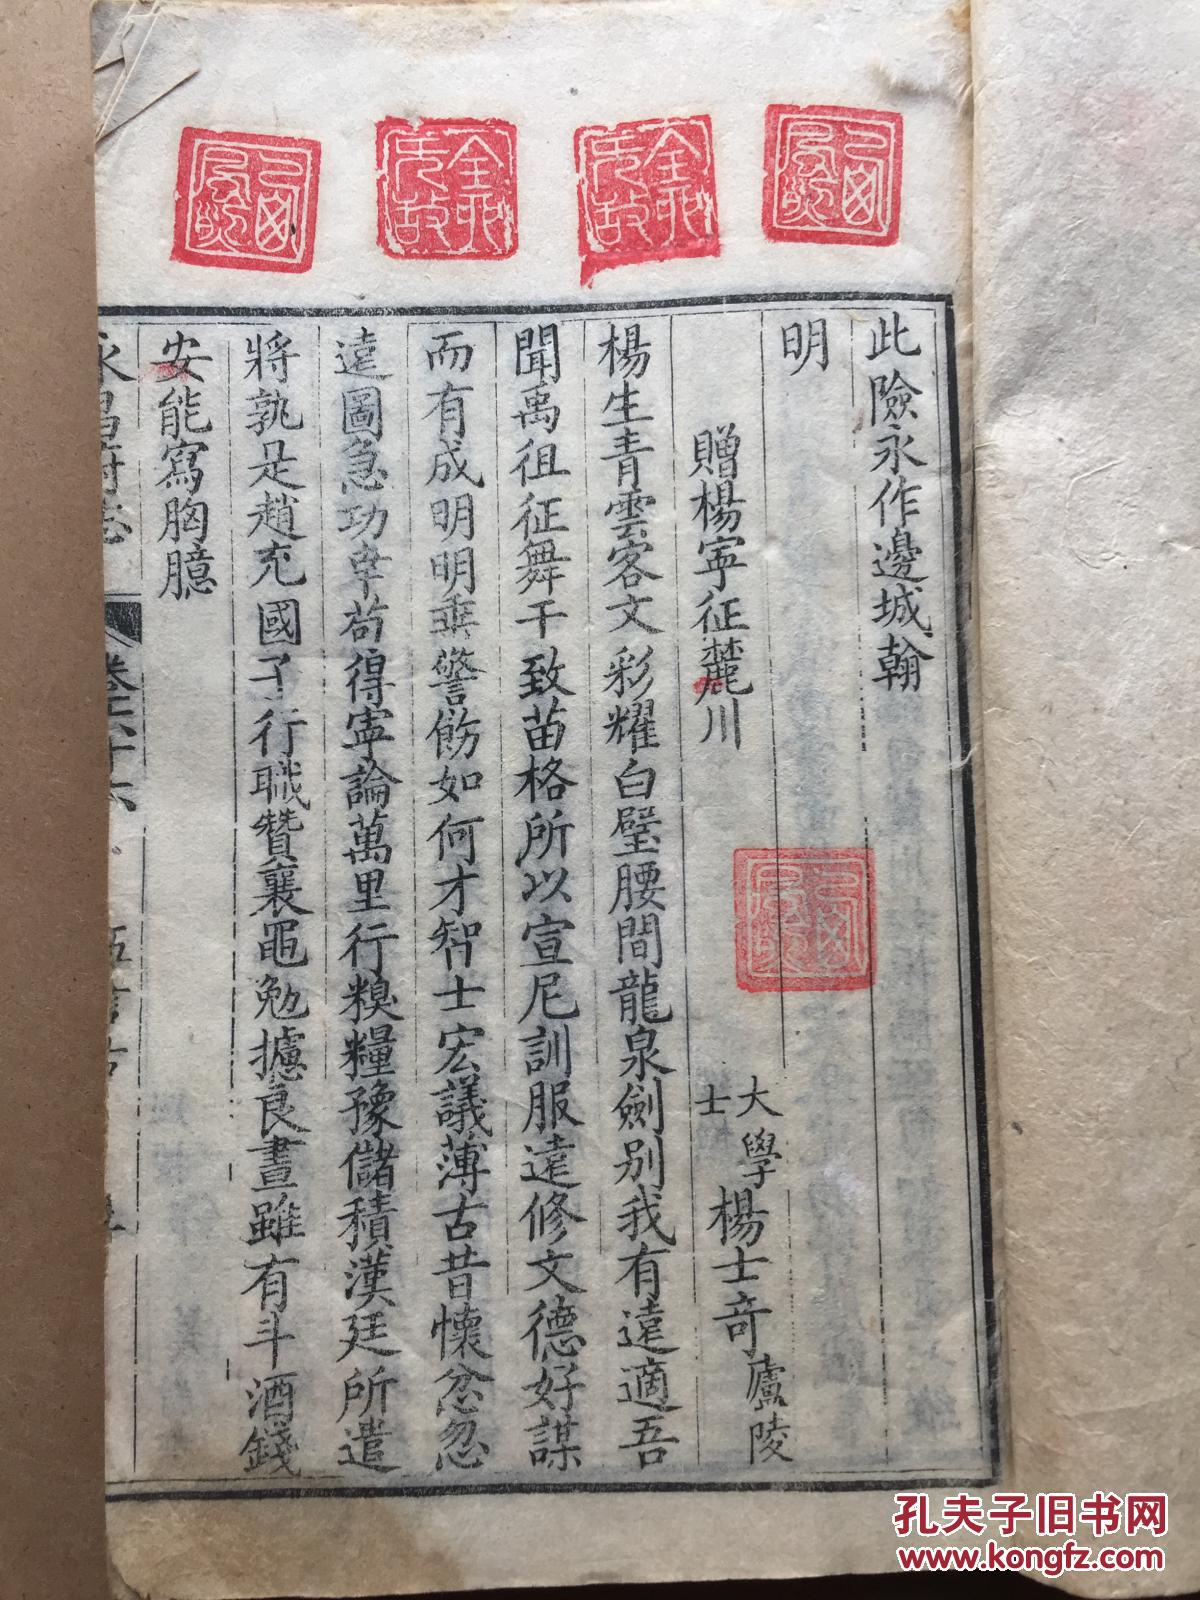 此險永作邊城翰
明
贈楊寧征麓川
大學士楊士竒廬陵
楊生青雲客文彩耀白璧腰間龍泉劍别我有遠適吾
聞禹徂征舞干致苗格所以宣尼訓服遠修文德好謀
而有成明明垂警飭如何才智士宏議薄古昔懷忿忽
遠圖急功幸茍得寧論萬里行糗糧豫儲積漢廷所遣
將孰是趙充國子行職贊襄黽勉攄良畫雖有斗酒錢
安能寫胸臆
永昌府志
卷二六十六
孔夫子旧书网
www.kongfz.com